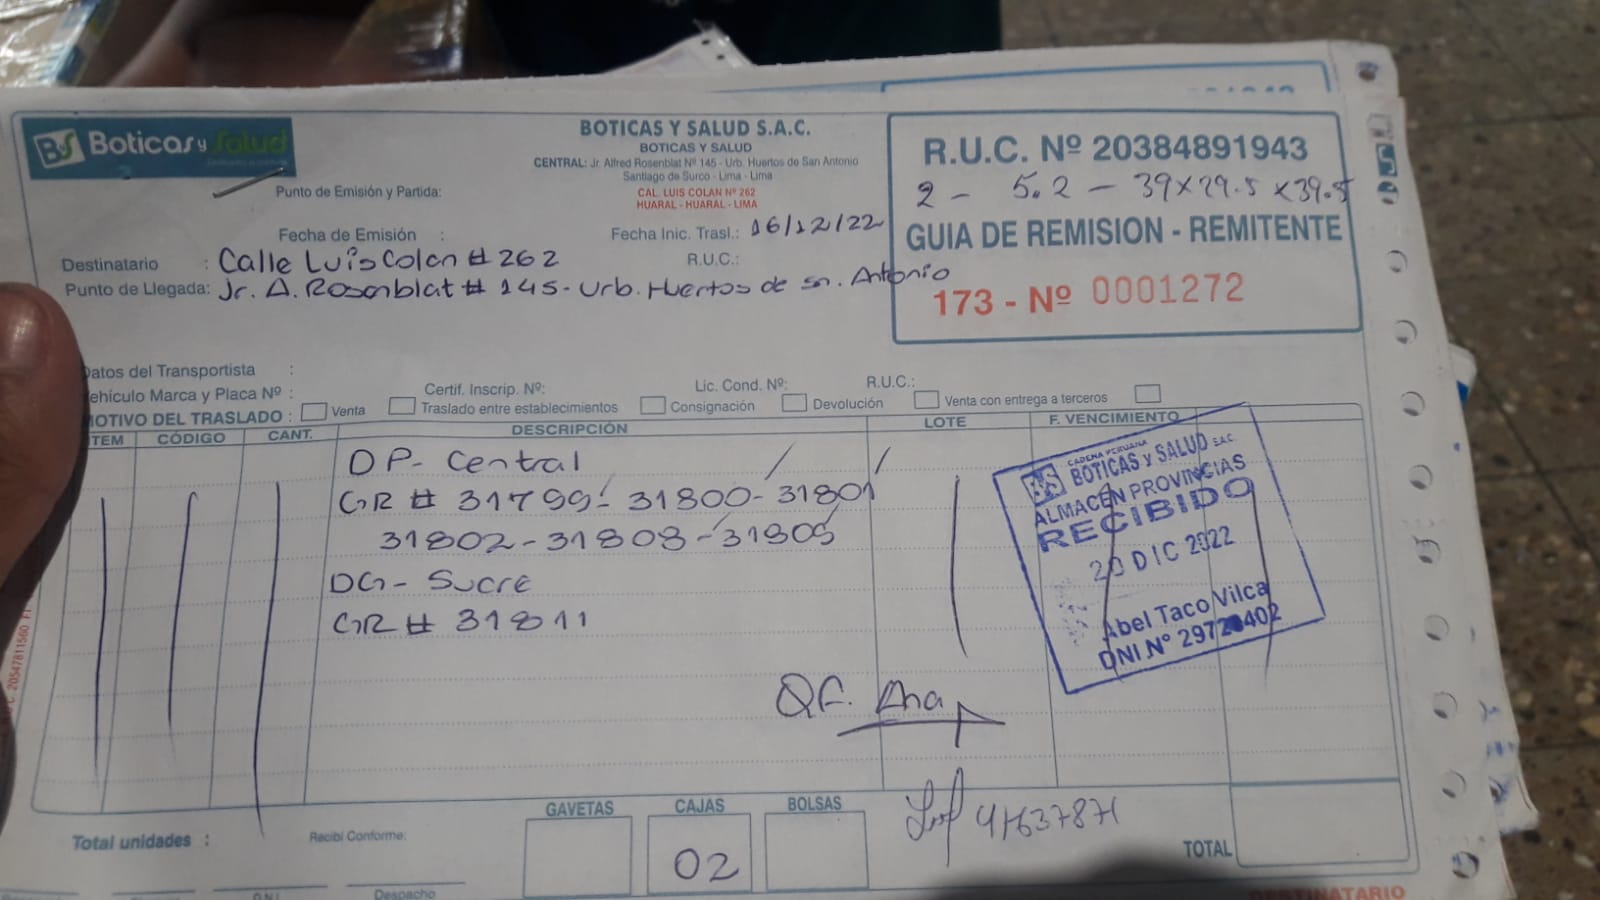 BS Boticas y Salud
BOTICAS Y SALUD S.A.C.
BOTICAS Y SALUD
CENTRAL: Jr. Alfred Rosenblat Nº 145 - Urb. Huertos de San Antonio
Santiago de Surco - Lima - Lima
Punto de Emisión y Partida:
CAL. LUIS COLAN Nº 262
HUARAL - HUARAL - LIMA
Fecha de Emisión :
Fecha Inic. Trasl.: 16/12/22
Destinatario : Calle Luis Colan # 262
R.U.C.:
Punto de Llegada: Jr. A. Rosenblat # 145 - Urb. Huertos de sn. Antonio
R.U.C. Nº 20384891943
2 - 5.2 - 39x29.5x39.5
GUIA DE REMISION - REMITENTE
173 - Nº 0001272
Datos del Transportista :
Vehículo Marca y Placa Nº :
Certif. Inscrip. Nº:
Lic. Cond. Nº:
R.U.C.:
MOTIVO DEL TRASLADO : Venta Traslado entre establecimientos Consignación Devolución Venta con entrega a terceros
ITEM CÓDIGO CANT. DESCRIPCIÓN LOTE F. VENCIMIENTO
DP- Central
GR # 31799- 31800- 31801
31802-31808-31805
DG- Sucre
GR # 31811
CADENA PERUANA
BS BOTICAS y SALUD S.A.C.
ALMACÉN PROVINCIAS
RECIBIDO
20 DIC 2022
Abel Taco Vilca
QF. Ana
41637871
GAVETAS CAJAS BOLSAS
02
Total unidades :
Recibí Conforme:
TOTAL
D.N.I.
Despacho
DESTINATARIO